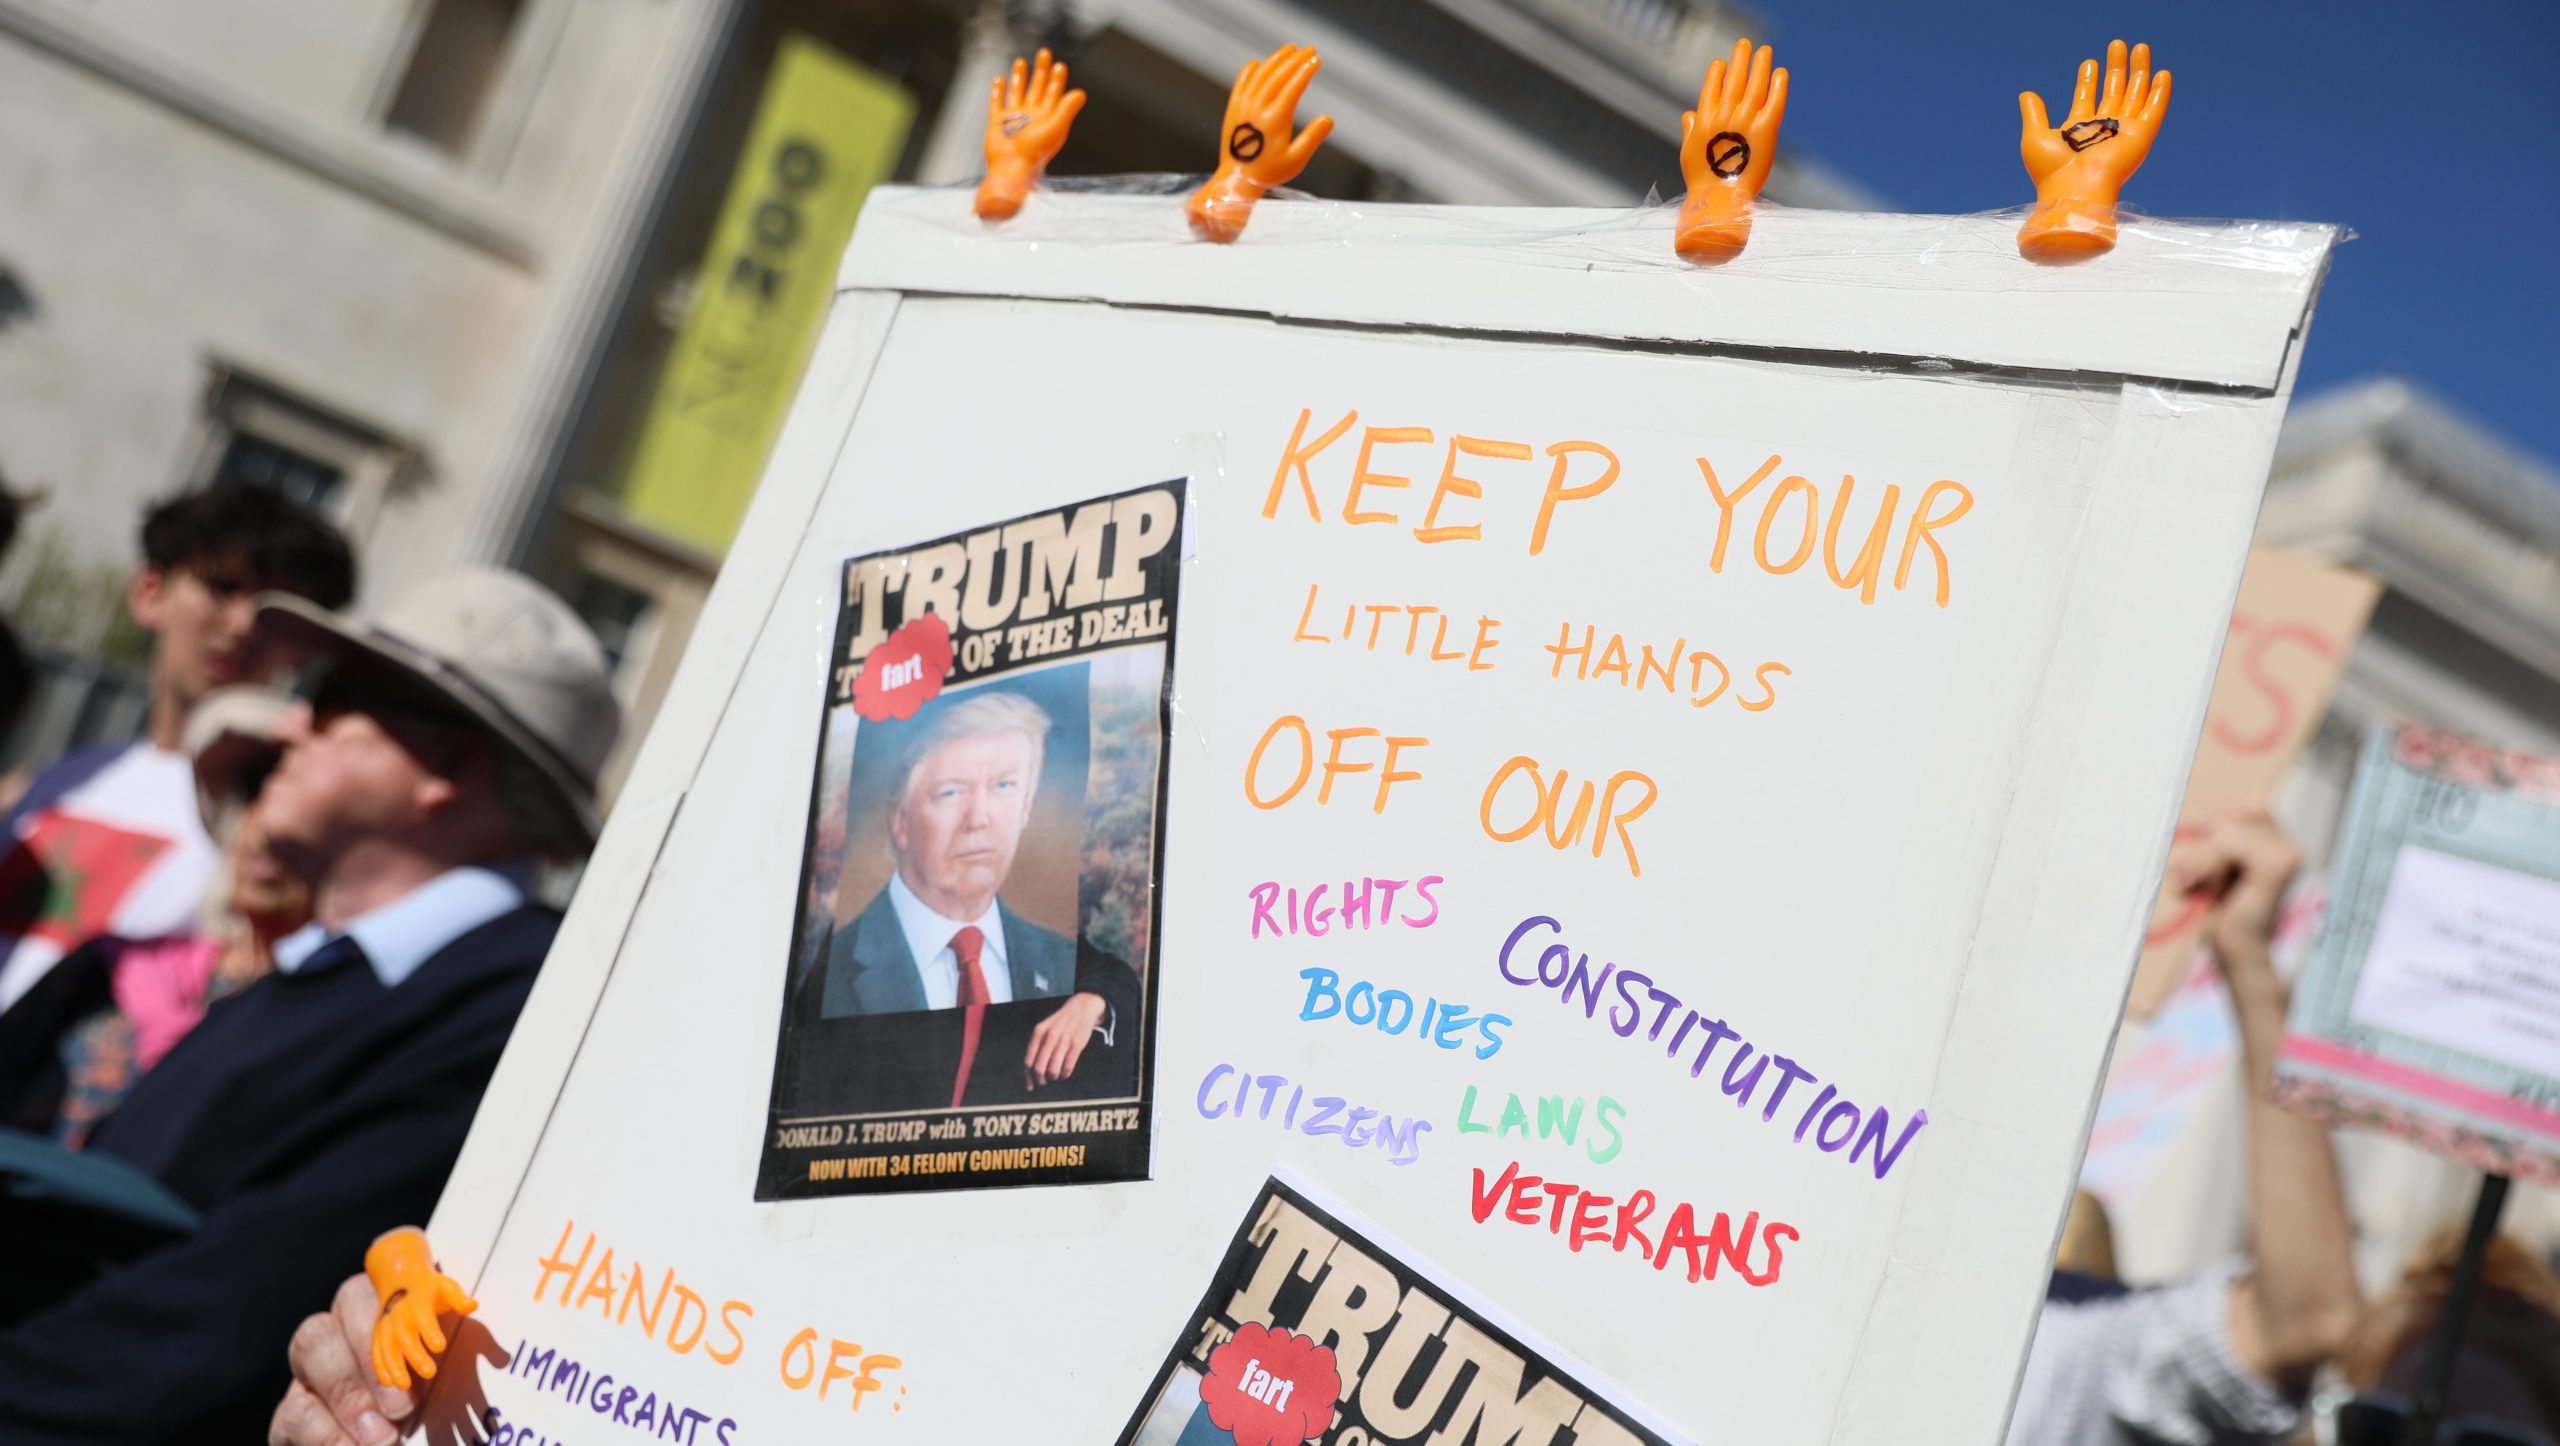 NG200
KEEP YOUR
LITTLE HANDS
OFF OUR
RIGHTS CONSTITUTION
BODIES
CITIZENS LAWS
VETERANS
TRUMP
fart OF THE DEAL
DONALD J. TRUMP with TONY SCHWARTZ
NOW WITH 34 FELONY CONVICTIONS!
HANDS OFF:
IMMIGRANTS
TRUMP
fart